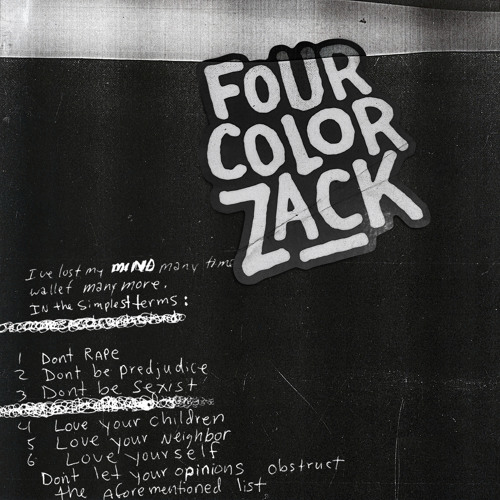 FOUR
COLOR
ZACK
I've lost my MIND many times
wallet many more.
IN the Simplest terms:
1 Dont RAPE
2 Dont be predjudice
3 Dont be Sexist
4 Love your children
5 Love your Neighbor
6 Love yourself
Dont let your opinions obstruct
the aforementioned list